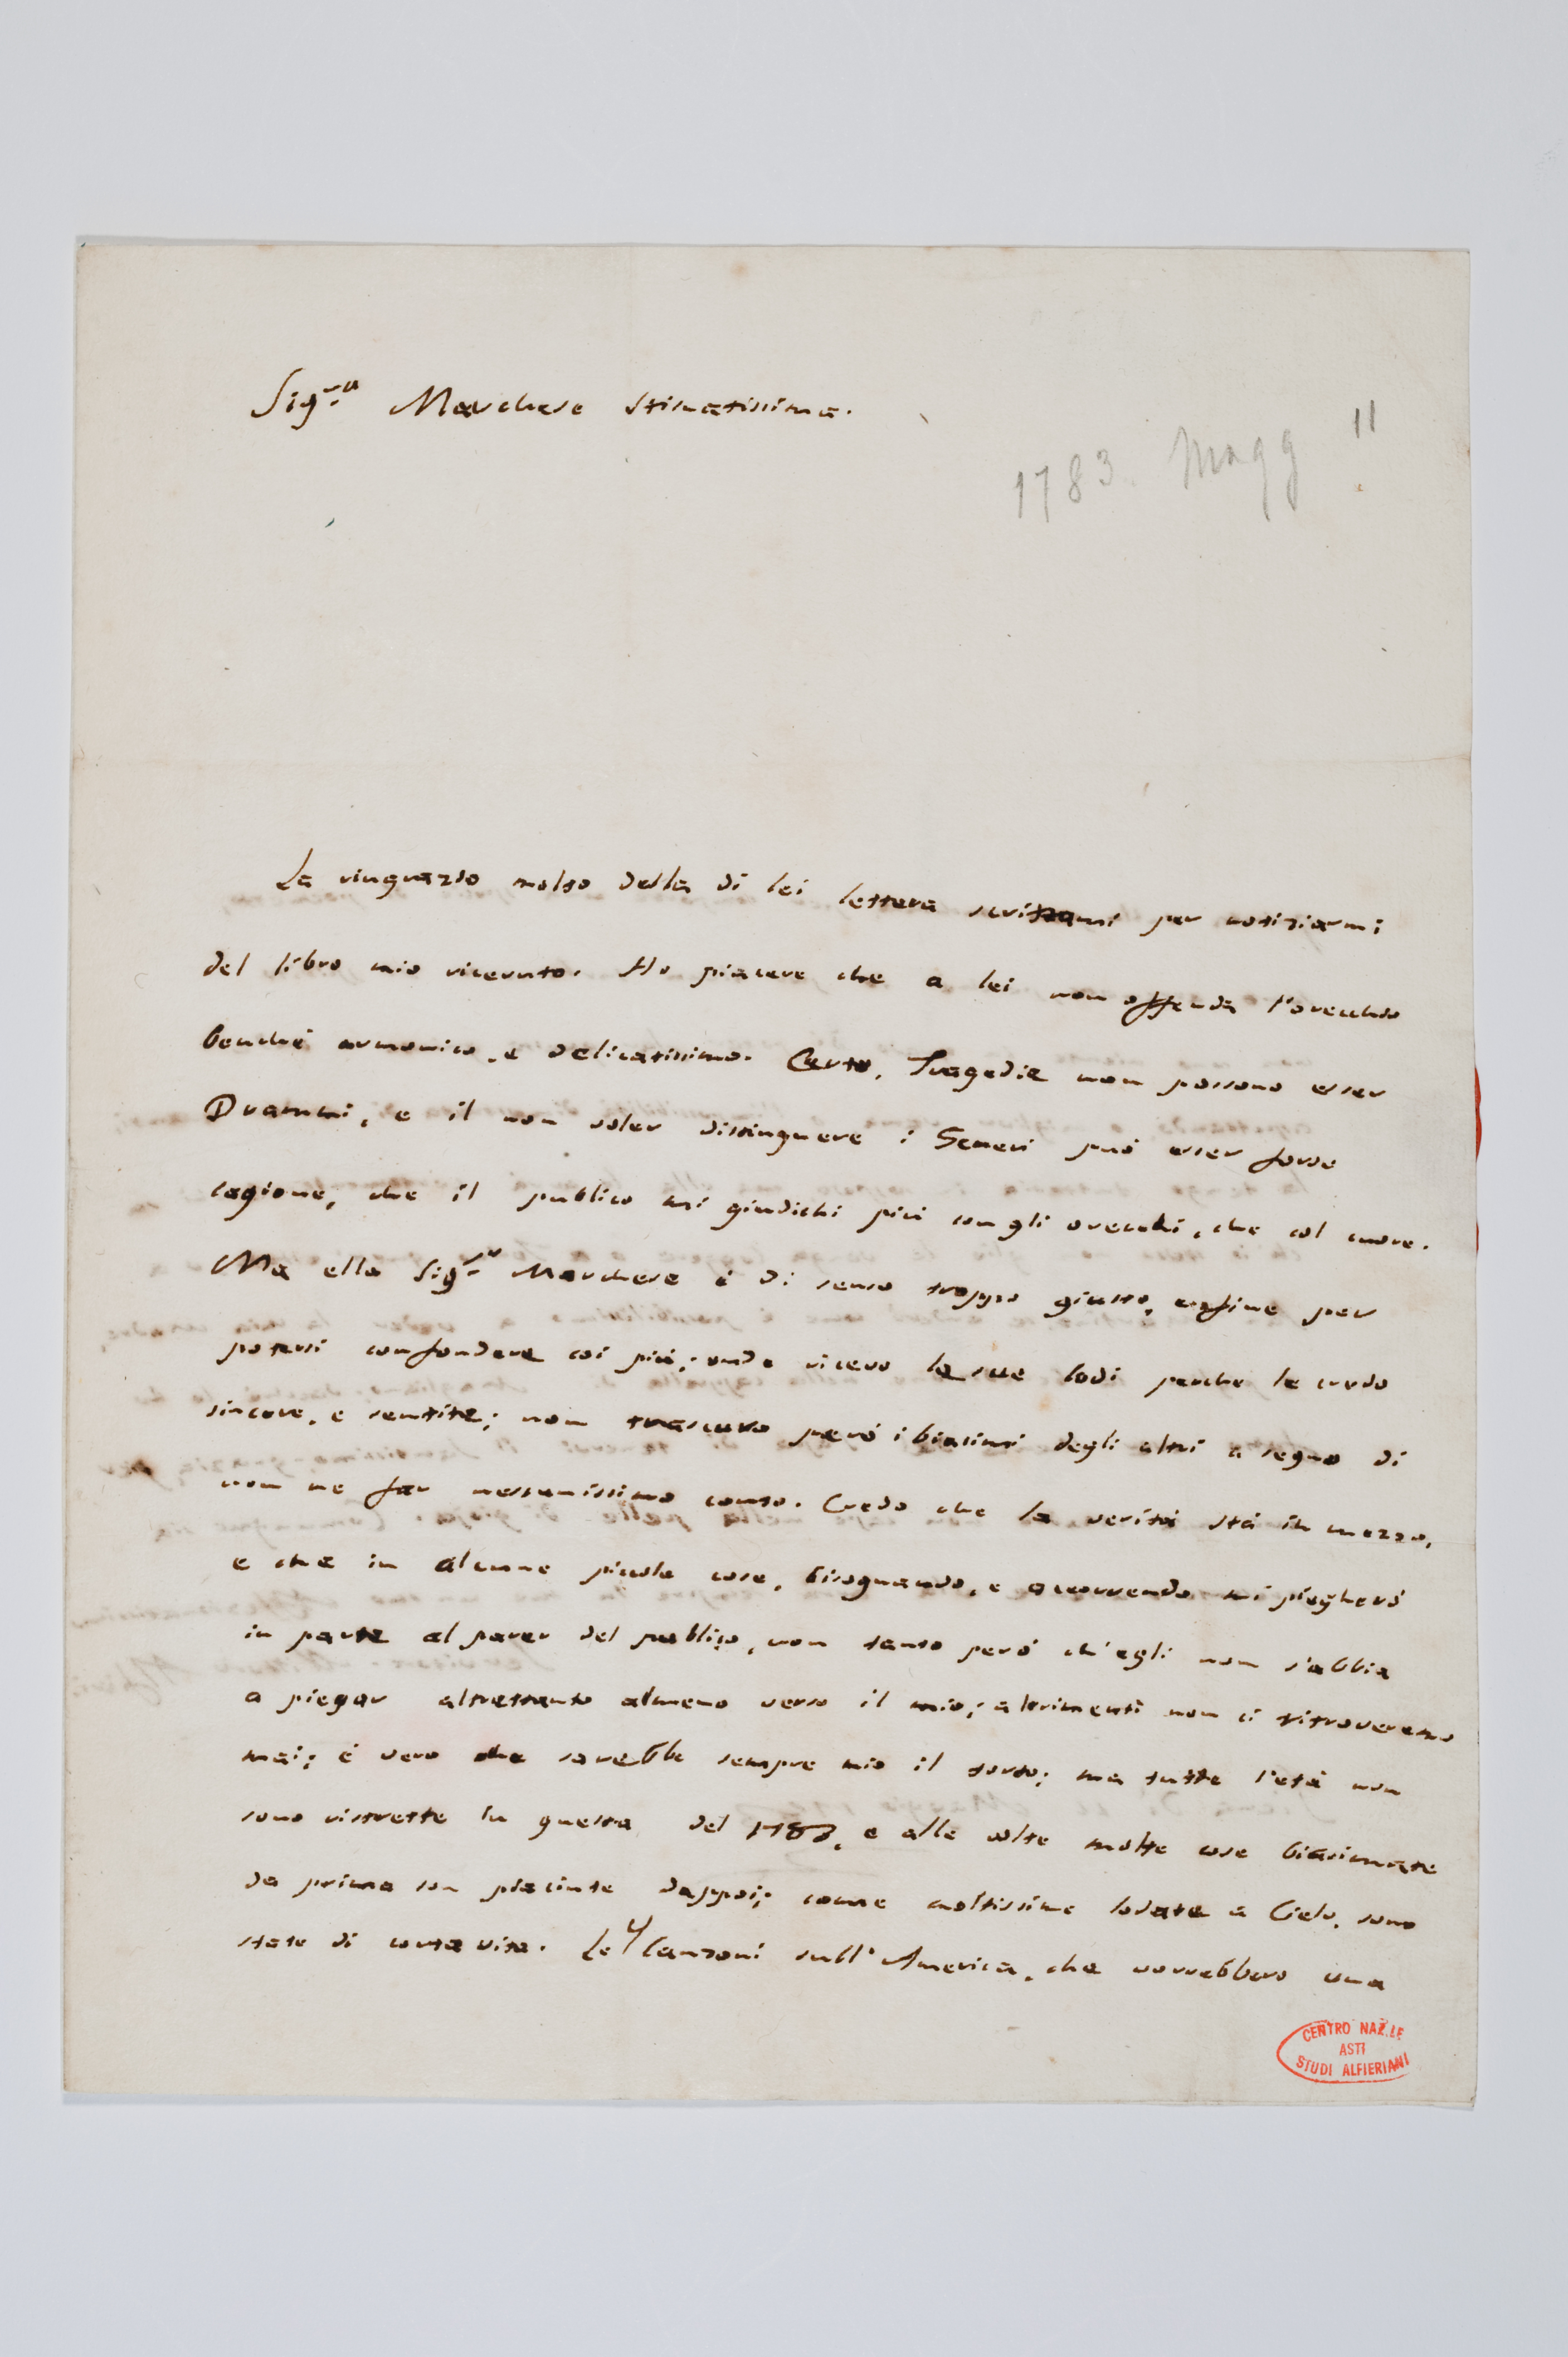 Sig.ra Marchese Stimatissima.
1783. Magg 11
La ringrazio molto della di lei lettera scrittami per notiziarmi
del libro mio ricevuto. Ho piacere che a lei non offenda l'orecchio
benché armonico, e delicatissimo. Certo, Tragedie non possono esser
Drammi, e il non voler distinguere i Generi può esser forse
cagione, che il publico mi giudichi più con gli orecchi, che col cuore.
Ma ella Sig.r Marchese è di senso troppo giusto, e fine per
potersi confondere coi più; onde ricevo le sue lodi perche le credo
sincere, e sentite; non trascuro però i biasimi degli altri a segno di
non ne far nessunissimo conto. Credo che la verità stà in mezzo,
e che in alcune piccole cose, bisognando, e occorrendo mi piegherò
in parte al parer del publico, non tanto però ch'egli non s'abbia
a piegar altrettanto almeno verso il mio; altrimenti non ci ritroveremo
mai; è vero che sarebbe sempre mio il torto; ma tutte l'età non
sono ristrette in questa del 1783, e alle volte molte cose biasimate
da prima son piaciute dappoi; come moltissime lodate a Cielo, sono
state di corta vita. Le 4 Canzoni sull'America, che vorrebbero una
CENTRO NAZ.LE
ASTI
STUDI ALFIERIANI